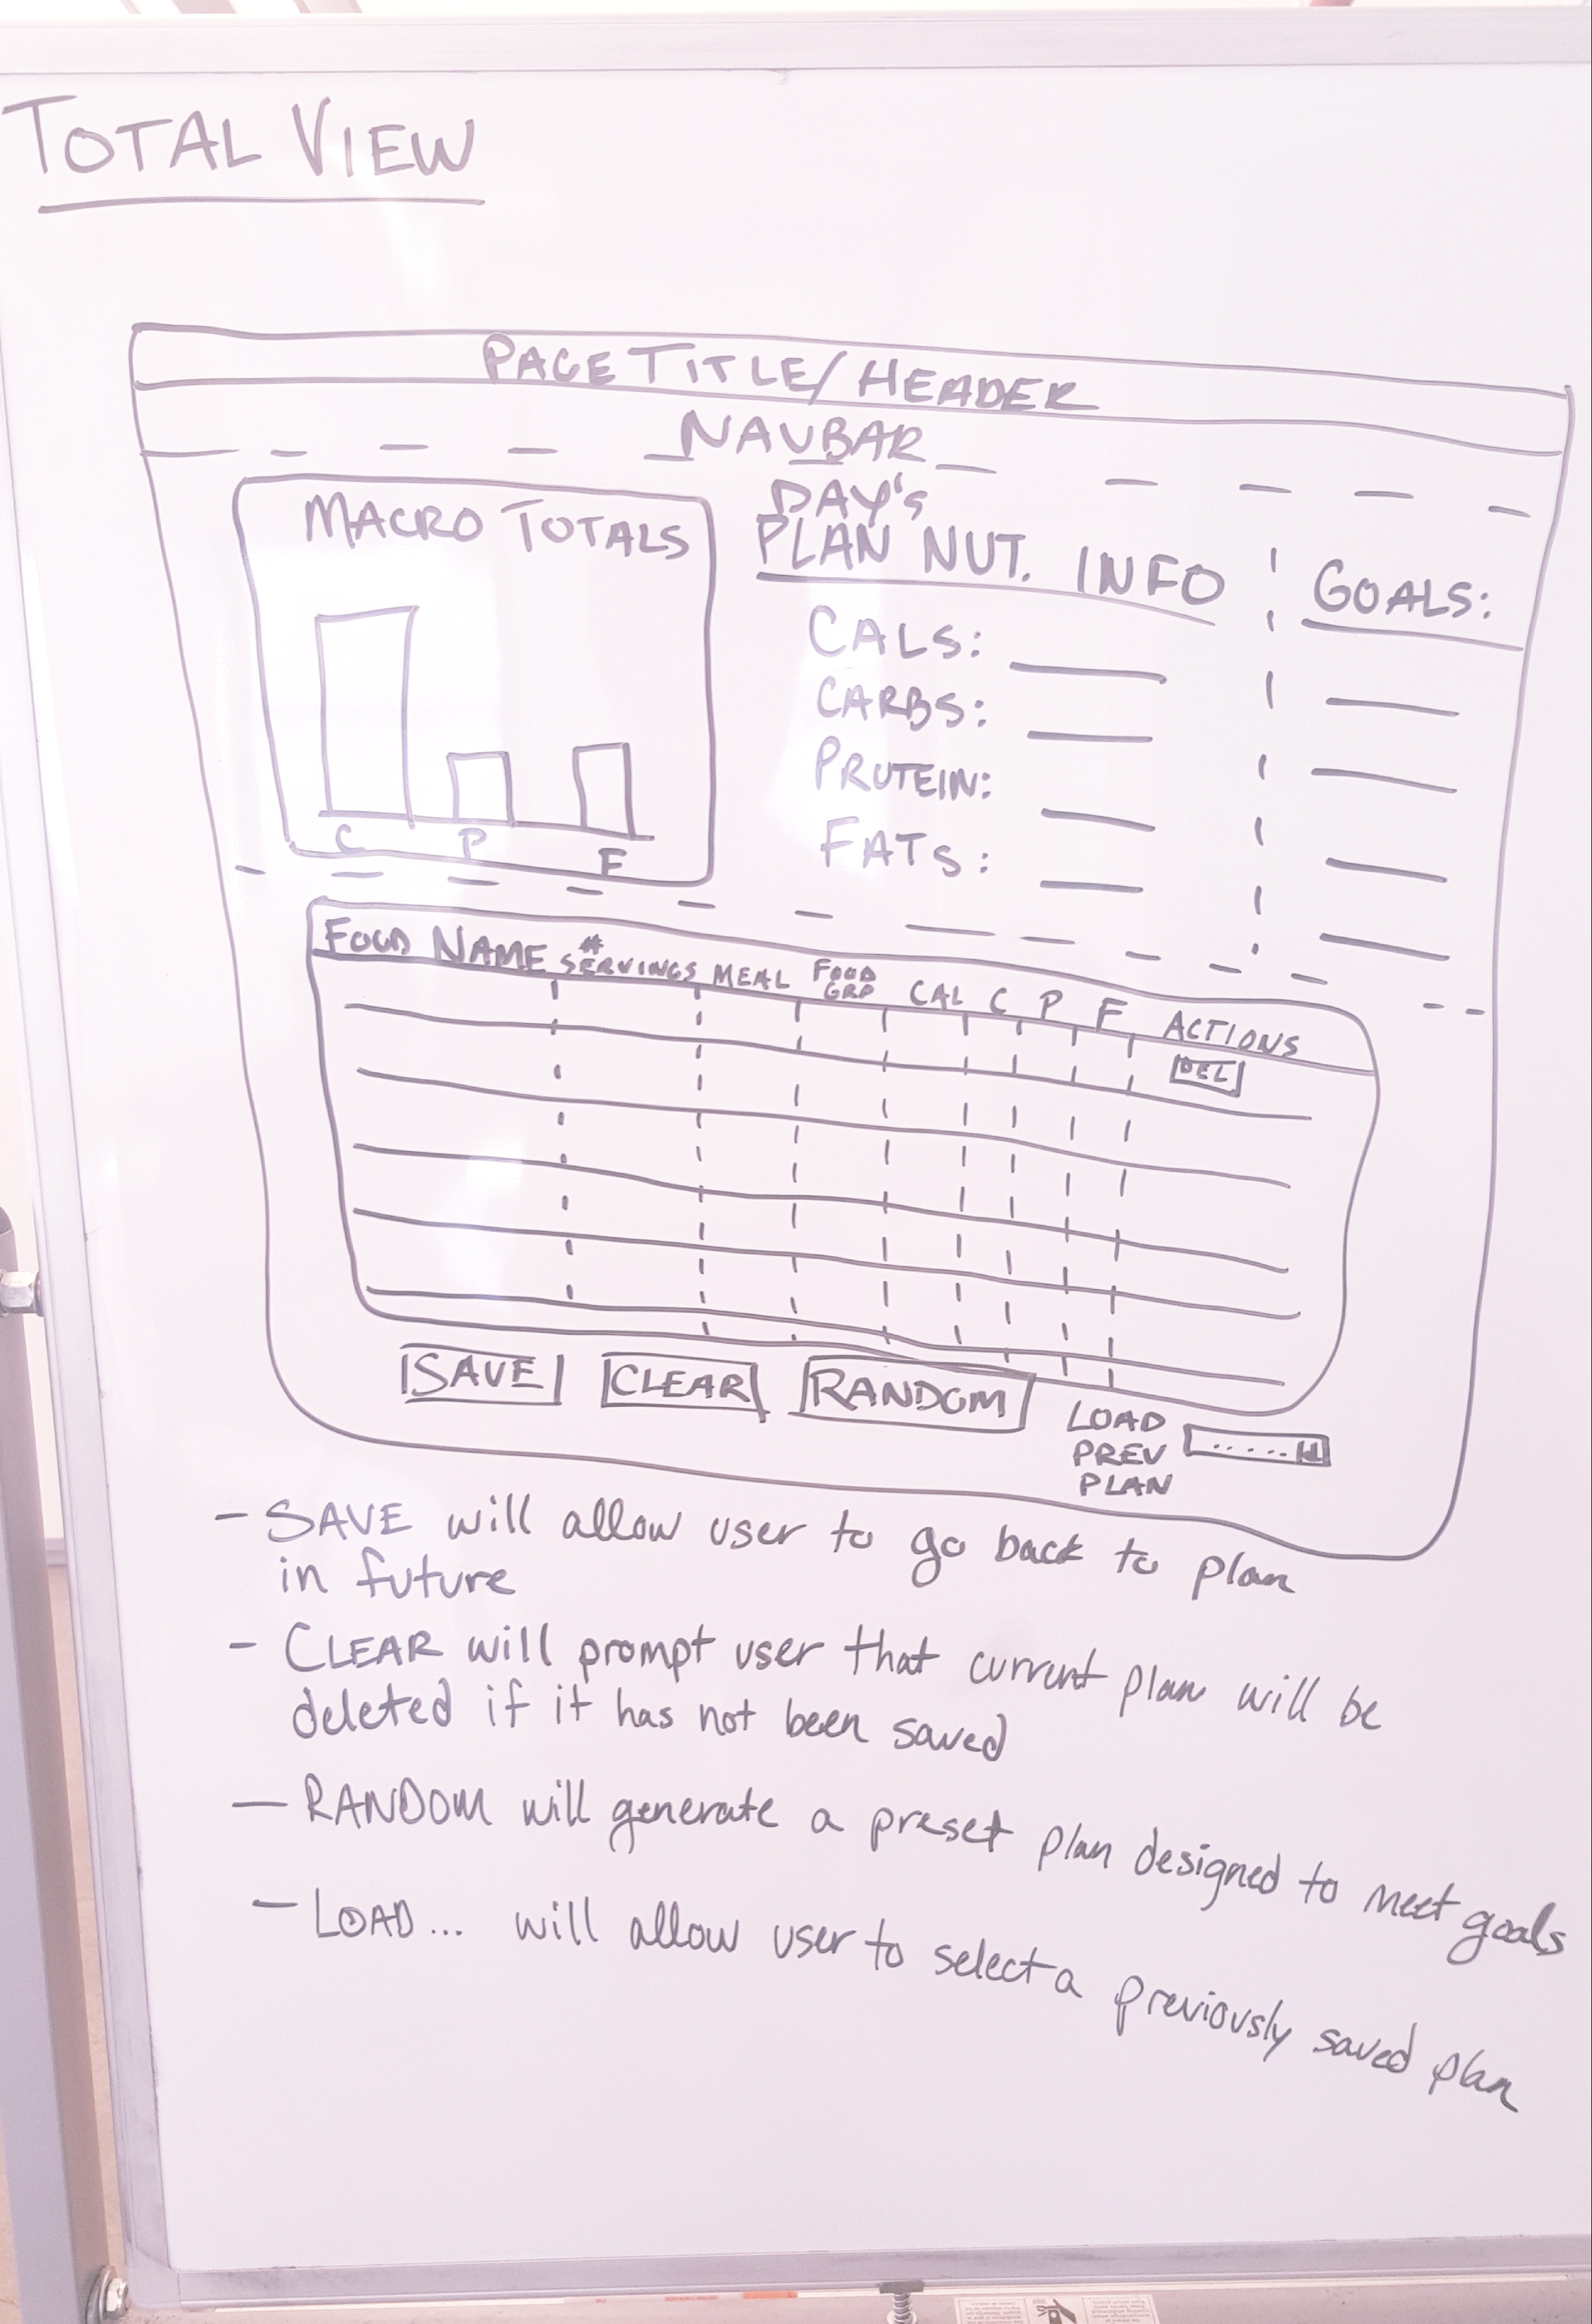 TOTAL VIEW
PAGE TITLE/HEADER
NAVBAR
MACRO TOTALS
C P F
DAY's
PLAN NUT. INFO
CALS:
CARBS:
PROTEIN:
FATS:
GOALS:
FOOD NAME # SERVINGS MEAL FOOD GRP CAL C P F ACTIONS
DEL
SAVE CLEAR RANDOM
LOAD
PREV
PLAN
- SAVE will allow user to go back to plan
in future
- CLEAR will prompt user that current plan will be
deleted if it has not been saved
- RANDOM will generate a preset plan designed to meet goals
- LOAD... will allow user to select a previously saved plan